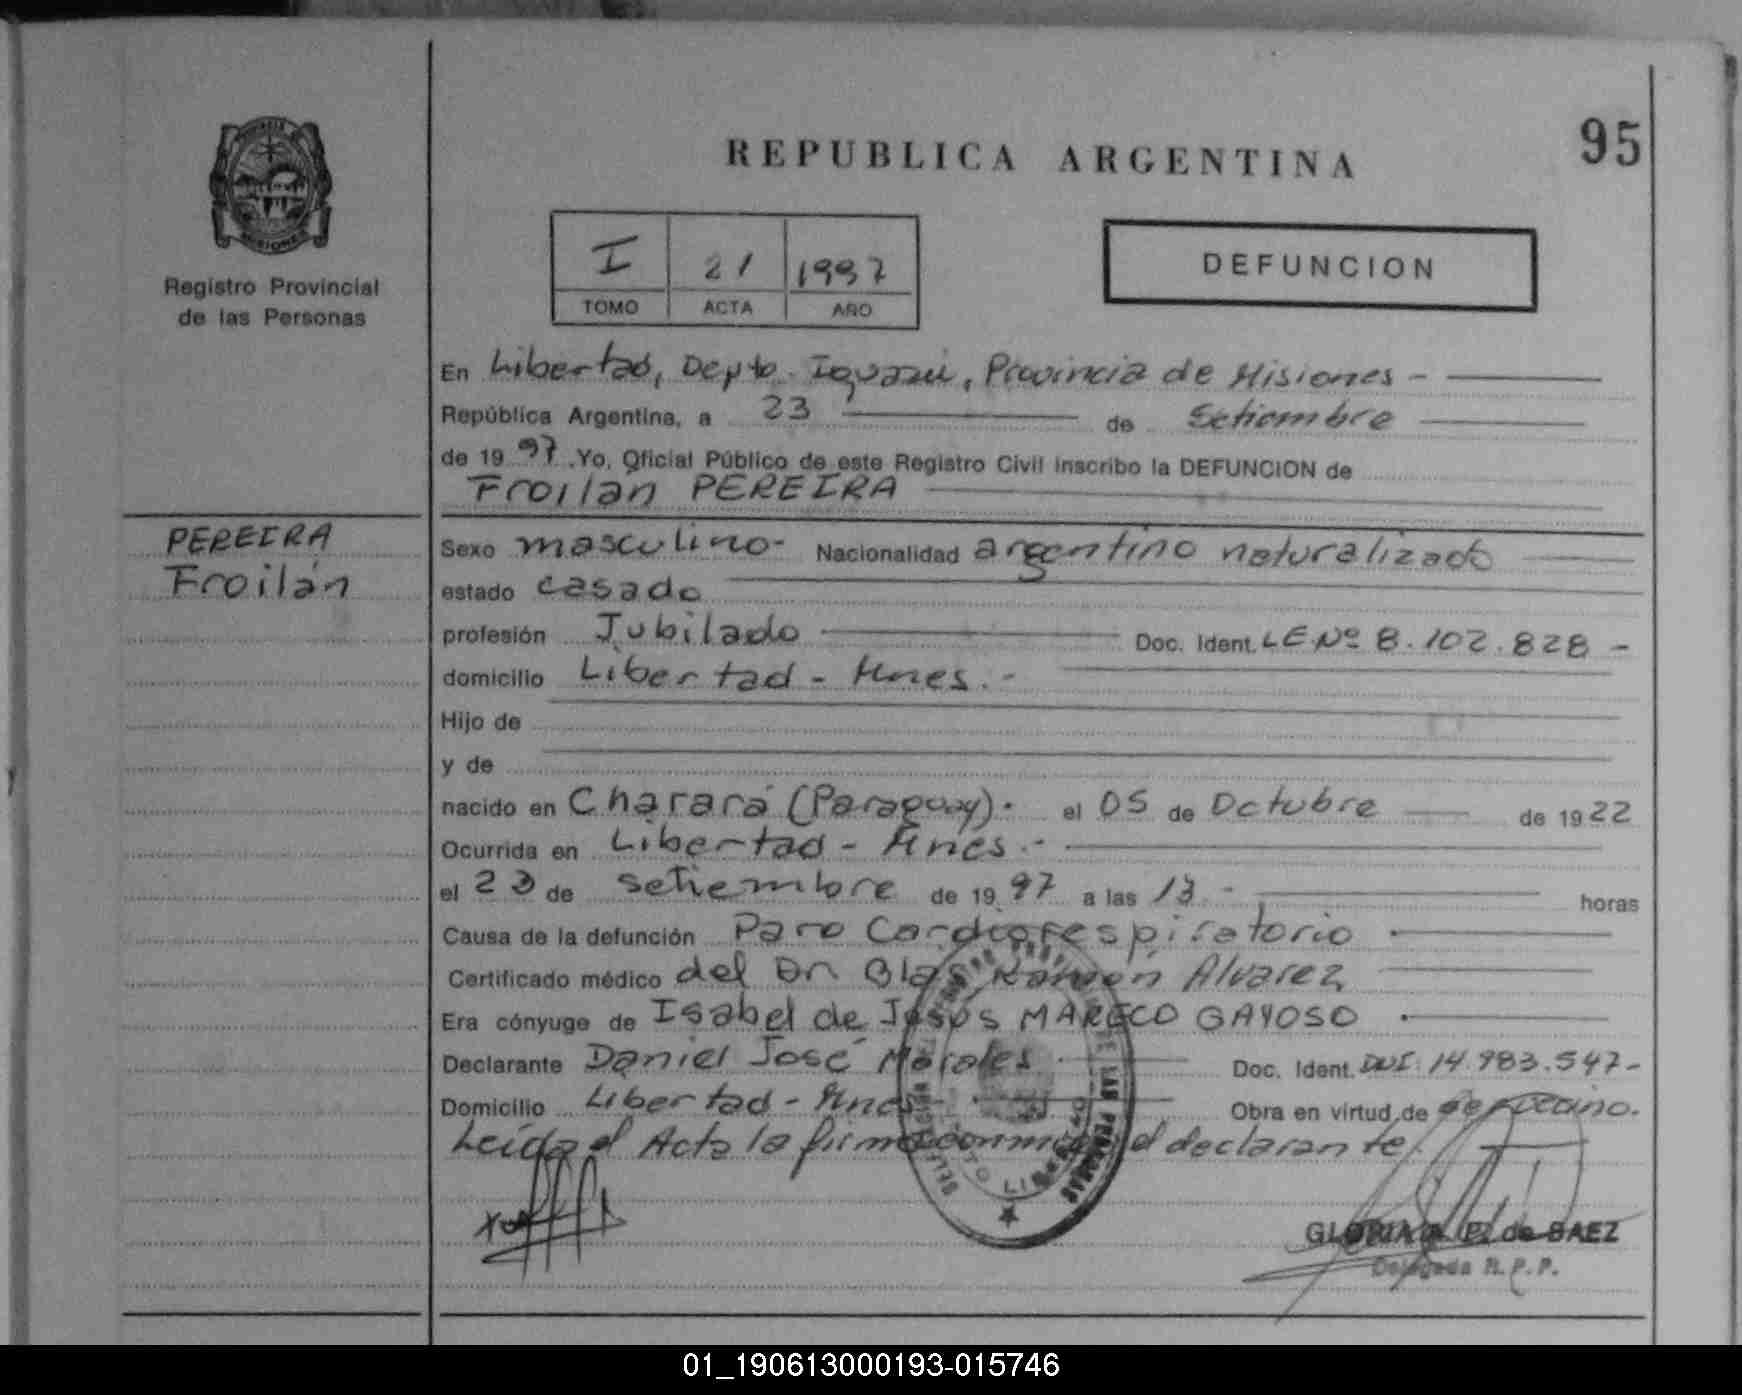 REPUBLICA ARGENTINA
95
MISIONES
Registro Provincial
de las Personas
I 21 1997
TOMO ACTA AÑO
DEFUNCION
En Libertad, Depto. Iguazú, Provincia de Misiones -
República Argentina, a 23 de Setiembre
de 1997. Yo, Oficial Público de este Registro Civil inscribo la DEFUNCION de
Froilan PEREIRA
PEREIRA
Froilán
Sexo masculino- Nacionalidad argentino naturalizado
estado casado
profesión Jubilado Doc. Ident. LE Nº 8.102.828 -
domicilio Libertad - Mnes. -
Hijo de
y de
nacido en Charará (Paraguay). el 05 de Octubre de 1922
Ocurrida en Libertad - Mnes. -
el 23 de setiembre de 1997 a las 13 - horas
Causa de la defunción Paro Cardiorespiratorio
Certificado médico del Dr Blas Ramón Alvarez
Era cónyuge de Isabel de Jesús MARECO GAYOSO
Declarante Daniel José Morales Doc. Ident. DNI 14.983.547-
Domicilio Libertad - Mnes - Obra en virtud de ser vecino.
Leída el Acta la firma conmigo el declarante.
GLORIA de BAEZ
Delegada R.P.P.
01_190613000193-015746